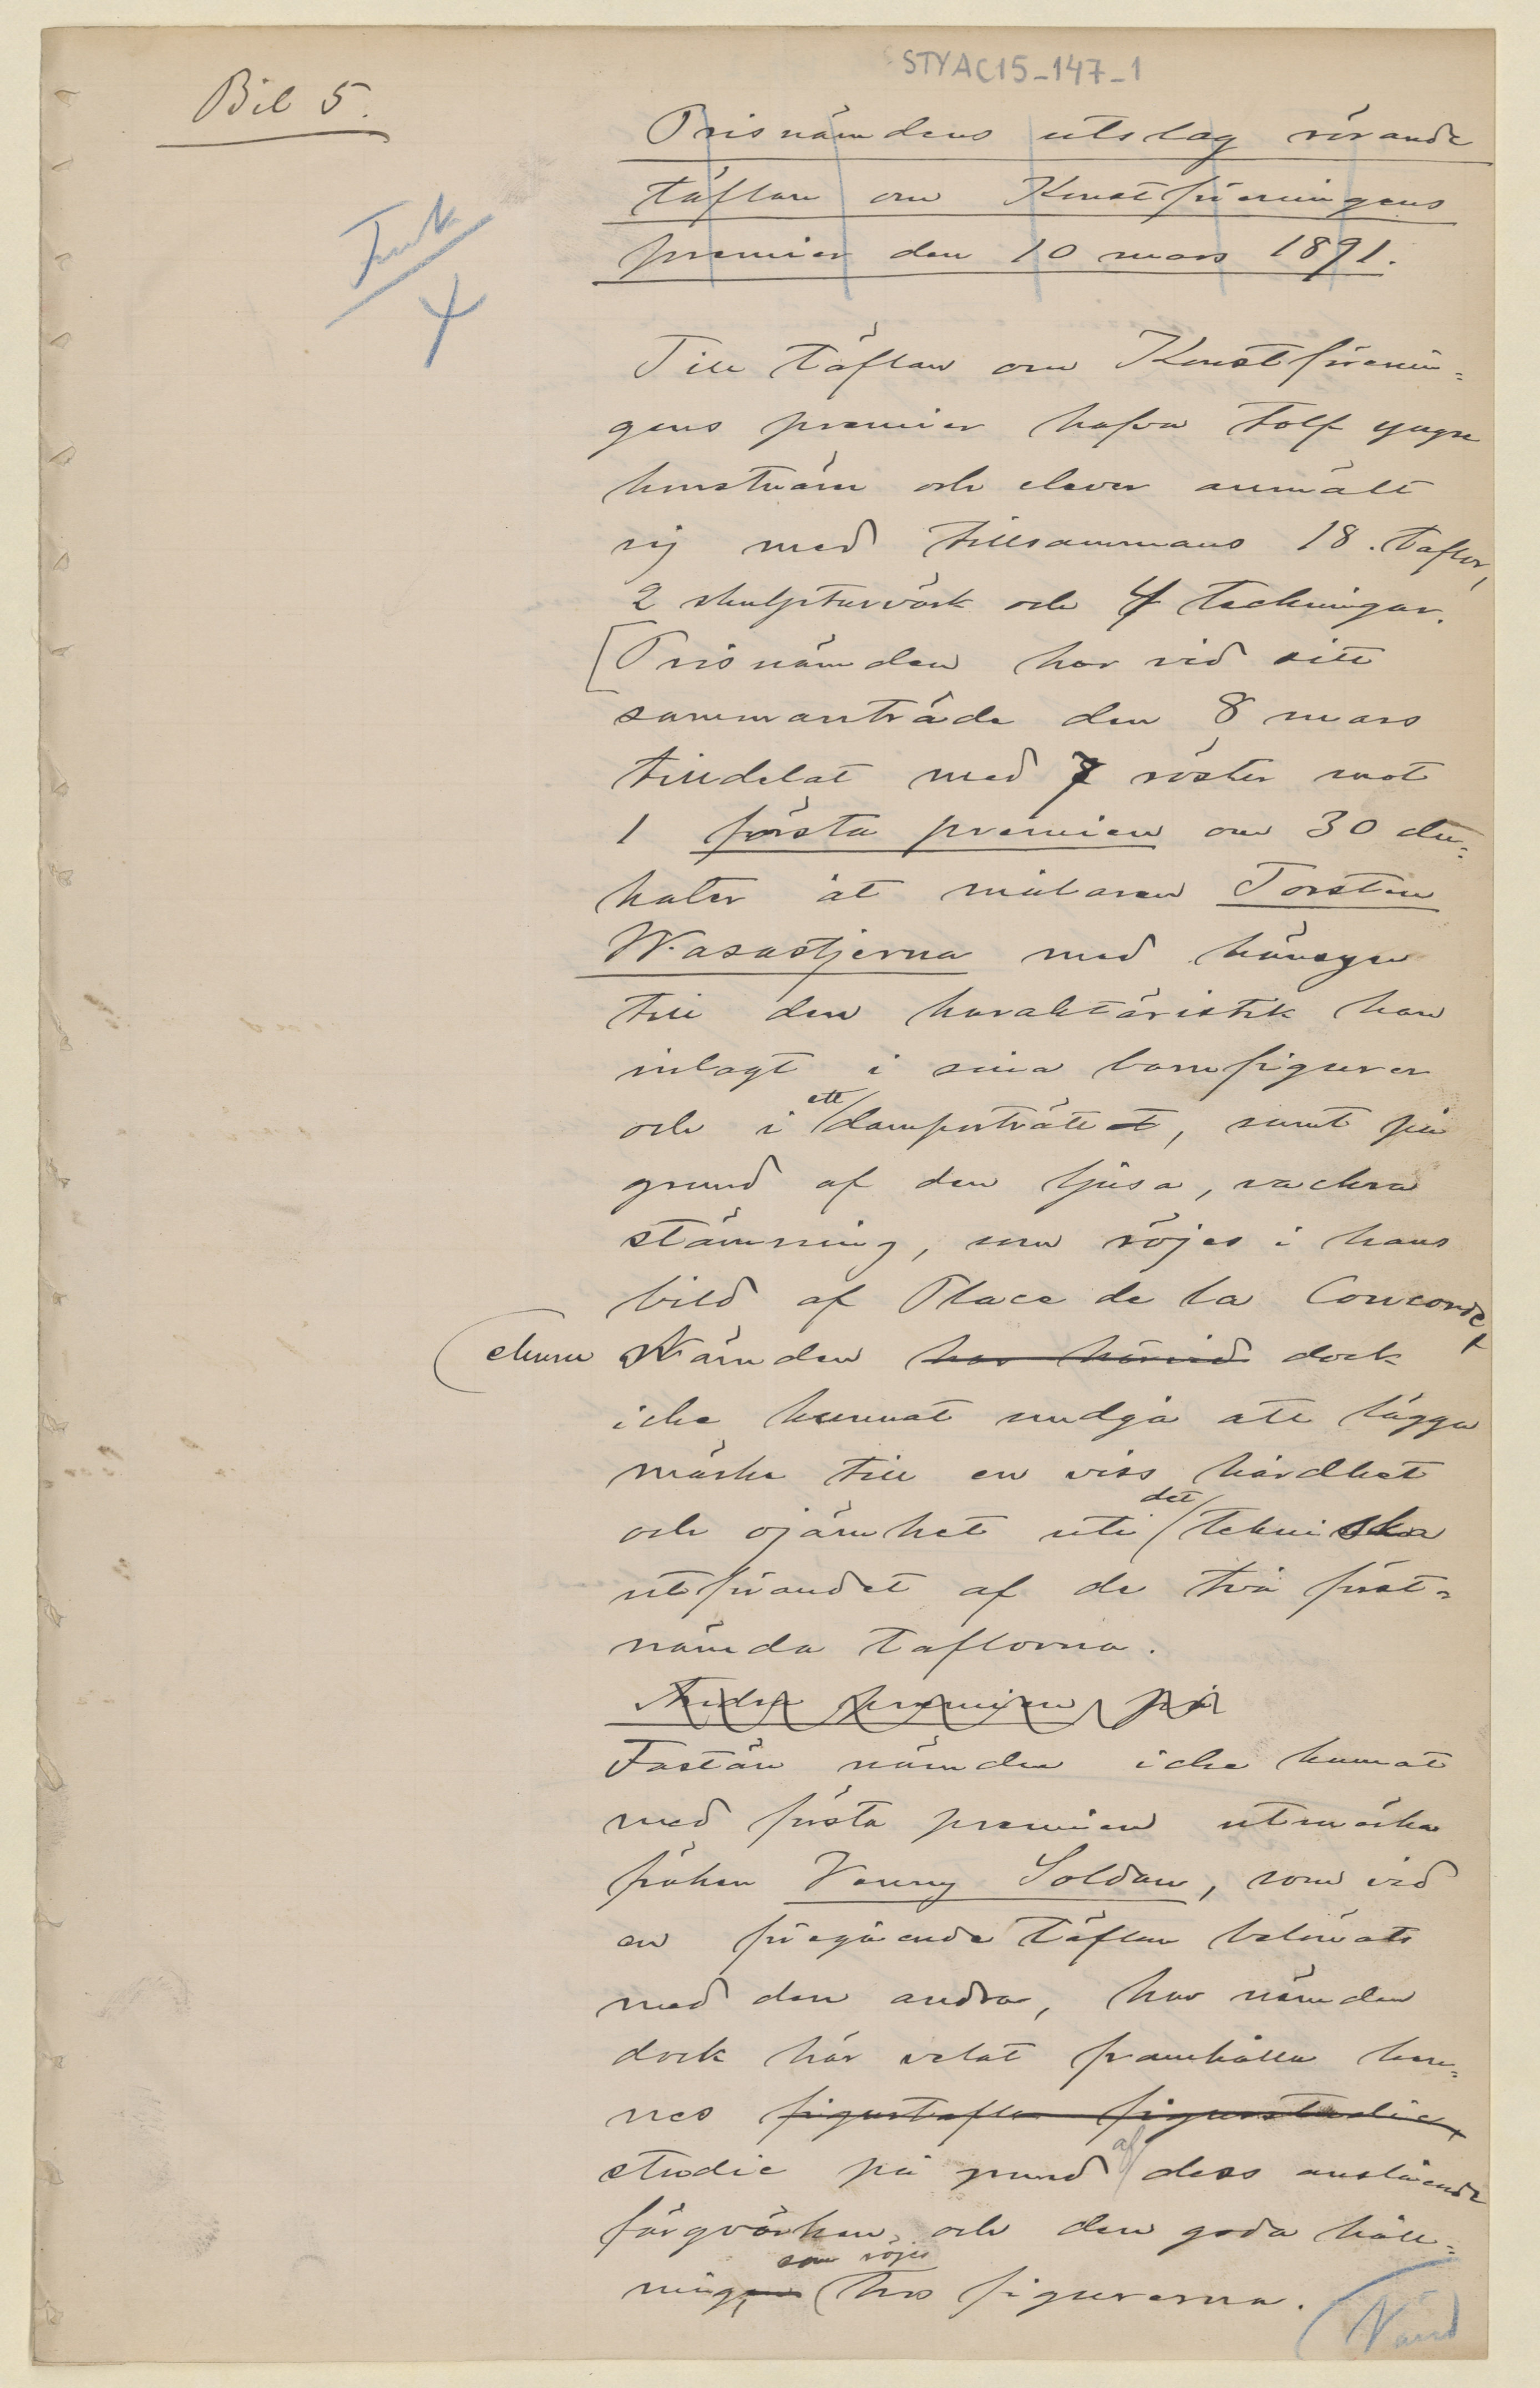 STYAC15-147-1
Bil 5.
Prisnämdens utslag rörande
täflan om Konstföreningens
premier den 10 mars 1891.
Till täflan om Konstförenin-
gens premier hafva tolf yngre
konstnärer och elever anmält
sig med tillsammans 18 taflor,
2 skulpturvärk och 4 teckningar.
[Prisnämden har vid sitt
sammanträde den 8 mars
tilldelat med 7 röster mot
1 första premien om 30 du-
kater åt målaren Torsten
Wasastjerna med hänsyn
till den karaktäristik han
inlagt i sina barnfigurer
och i ett damporträtt, samt på
grund af den ljusa, vackra
stämning, som röjes i hans
bild af Place de la Concorde,
ehuru Nämden har härvid dock
icke kunnat undgå att lägga
märke till en viss hårdhet
och ojämhet uti det tekniska
utförandet af de två först-
nämda taflorna.
Andra premien på
Fastän nämden icke kunnat
med första premien utmärka
fröken Venny Soldan, som vid
en föregående täflan belönats
med den andra, har nämden
dock här velat framhålla hen-
nes figurtafla figurstudie,
studie på grund af dess anslående
färgvärkan, och den goda håll-
ning, som röjes hos figurerna.
Vänd